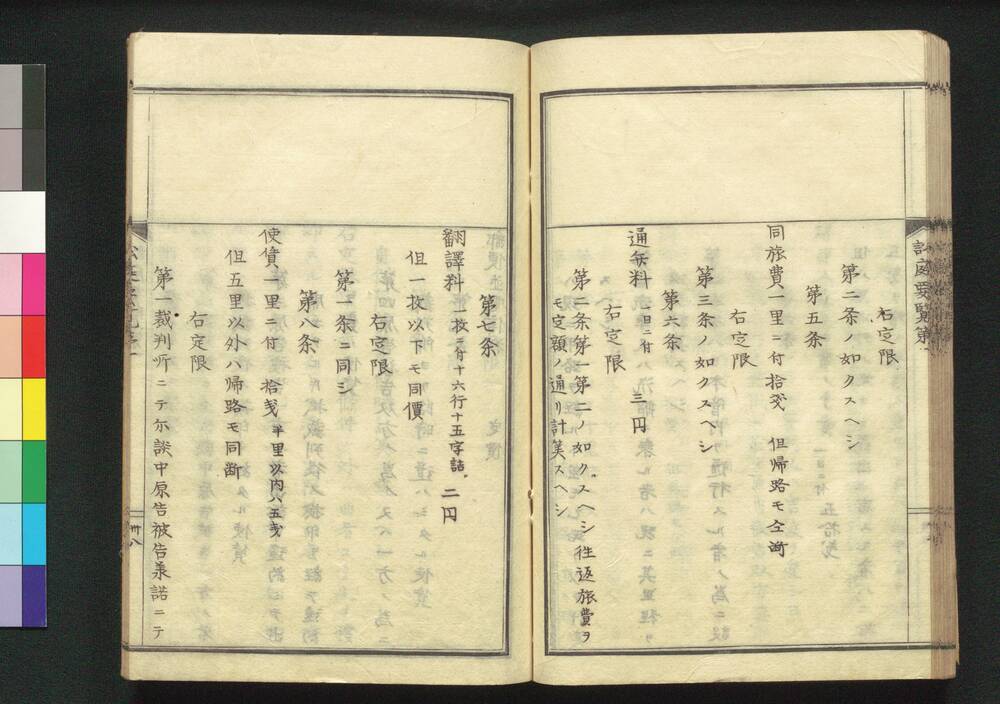 訟庭要覧第一
右定限
第二条ノ如クスヘシ
第五条
同旅費一里ニ付拾戔 但帰路モ仝断
右定限
第三条ノ如クスヘシ
第六条
通弁料 一日ニ付 三円
右定限
第二条第一第二ノ如クスヘシ往返旅費ヲ
モ定額ノ通リ計美スヘシ
第七条
翻譯料 一枚ニ付十六行十五字詰 二円
但一枚以下モ同價
右定限
第一条ニ同シ
第八条
使賃一里ニ付 拾戔 半里以内ハ五戔
但五里以外ハ帰路モ同断
右定限
第一裁判所ニテ示談中原告被告義諾ニテ
卅八